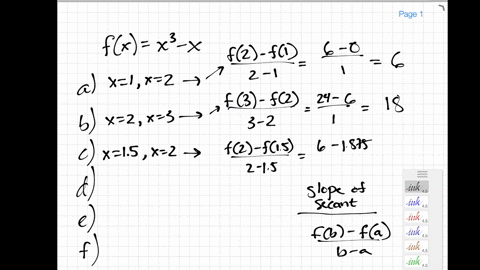 Page 1
f(x) = x³ - x
a) x=1, x=2 → f(2)-f(1) / 2-1 = 6-0 / 1 = 6
b) x=2, x=3 → f(3)-f(2) / 3-2 = 24-6 / 1 = 18
c) x=1.5, x=2 → f(2)-f(1.5) / 2-1.5 = 6-1.875
d)
e)
f)
slope of
secant
f(b)-f(a) / b-a
ink
ink
ink
ink
ink